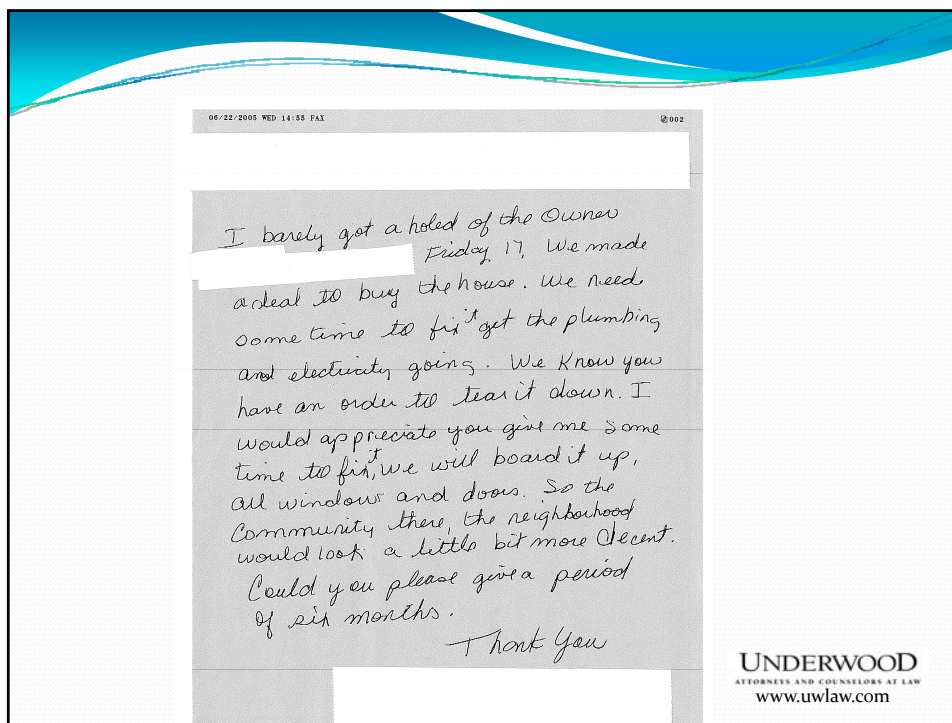 06/22/2005 WED 14:55 FAX 002
I barely got a holed of the Owner
Friday 17, We made
a deal to buy the house. We need
some time to fix it get the plumbing
and electricity going. We Know you
have an order to tear it down. I
would appreciate you give me some
time to fix it, we will board it up,
all windows and doors. So the
Community there, the neighborhood
would look a little bit more decent.
Could you please give a period
of six months.
Thank You
UNDERWOOD
ATTORNEYS AND COUNSELORS AT LAW
www.uwlaw.com